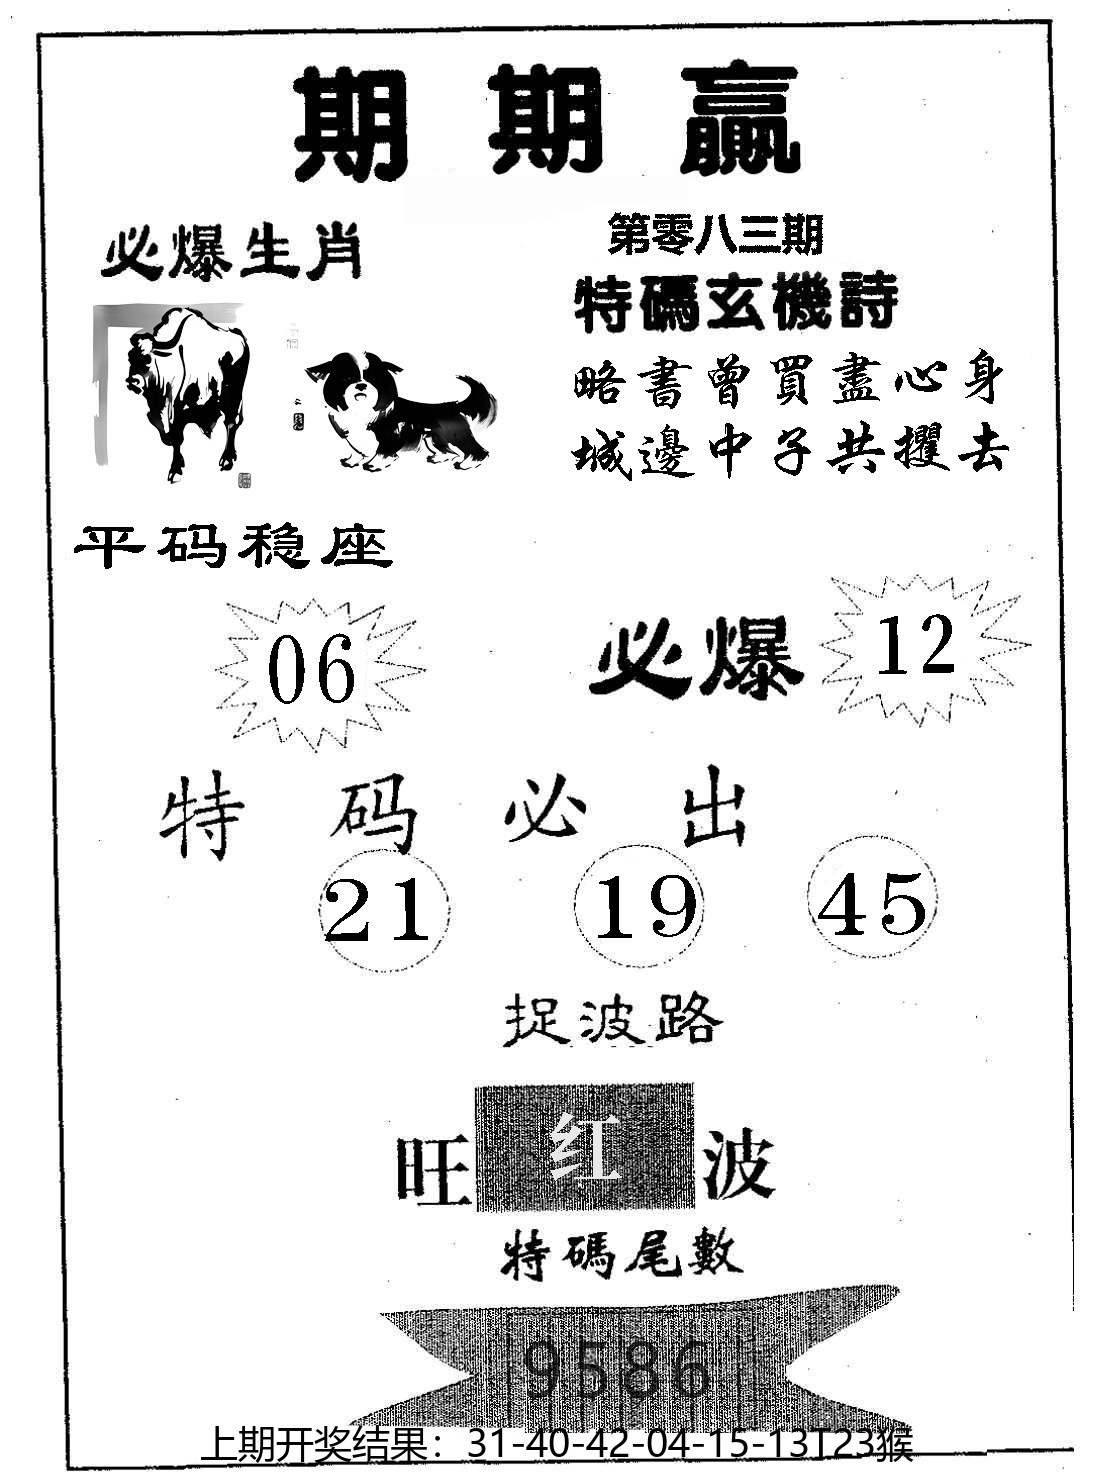 期期贏
必爆生肖
第零八三期
特碼玄機詩
略書曾買盡心身
城邊中子共攞去
平码稳座
06
必爆 12
特码必出
21 19 45
捉波路
旺 红 波
特碼尾數
9586
上期开奖结果：31-40-42-04-15-13T23猴